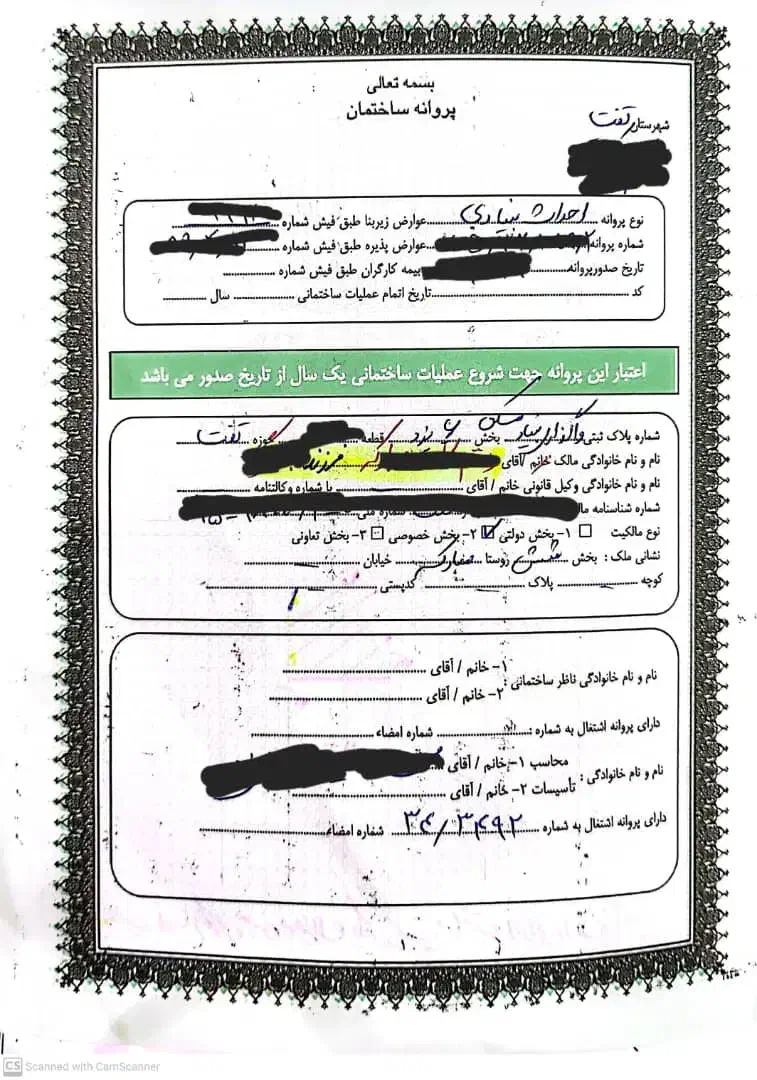 بسمه تعالی
پروانه ساختمان
شهرستان تفت
نوع پروانه ........ احداث بنیادی ........ عوارض زیربنا طبق فیش شماره ........
شماره پروانه ........ عوارض پذیره طبق فیش شماره ........
تاریخ صدورپروانه ........ بیمه کارگران طبق فیش شماره ........
کد ........ تاریخ اتمام عملیات ساختمانی ........ سال ........
اعتبار این پروانه جهت شروع عملیات ساختمانی یک سال از تاریخ صدور می باشد
شماره پلاک ثبتی واگذاری بنیاد مسکن بخش ۶ یزد قطعه ........ حوزه تفت
نام و نام خانوادگی مالک خانم / آقای ........ فرزند
نام و نام خانوادگی وکیل قانونی خانم / آقای ........ با شماره وکالتنامه ........
شماره شناسنامه
نوع مالکیت ۱- بخش دولتی ۲- بخش خصوصی ۳- بخش تعاونی
نشانی ملک : بخش ........ روستا مبارکه خیابان ........
کوچه ........ پلاک ........ کدپستی ........
نام و نام خانوادگی ناظر ساختمانی : ۱- خانم / آقای ........
۲- خانم / آقای ........
دارای پروانه اشتغال به شماره : ........ شماره امضاء ........
نام و نام خانوادگی : محاسب ۱- خانم / آقای ........
تأسیسات ۲- خانم / آقای ........
دارای پروانه اشتغال به شماره ........ ۳۴/۳۴۹۲ ........ شماره امضاء ........
۱
CS Scanned with CamScanner